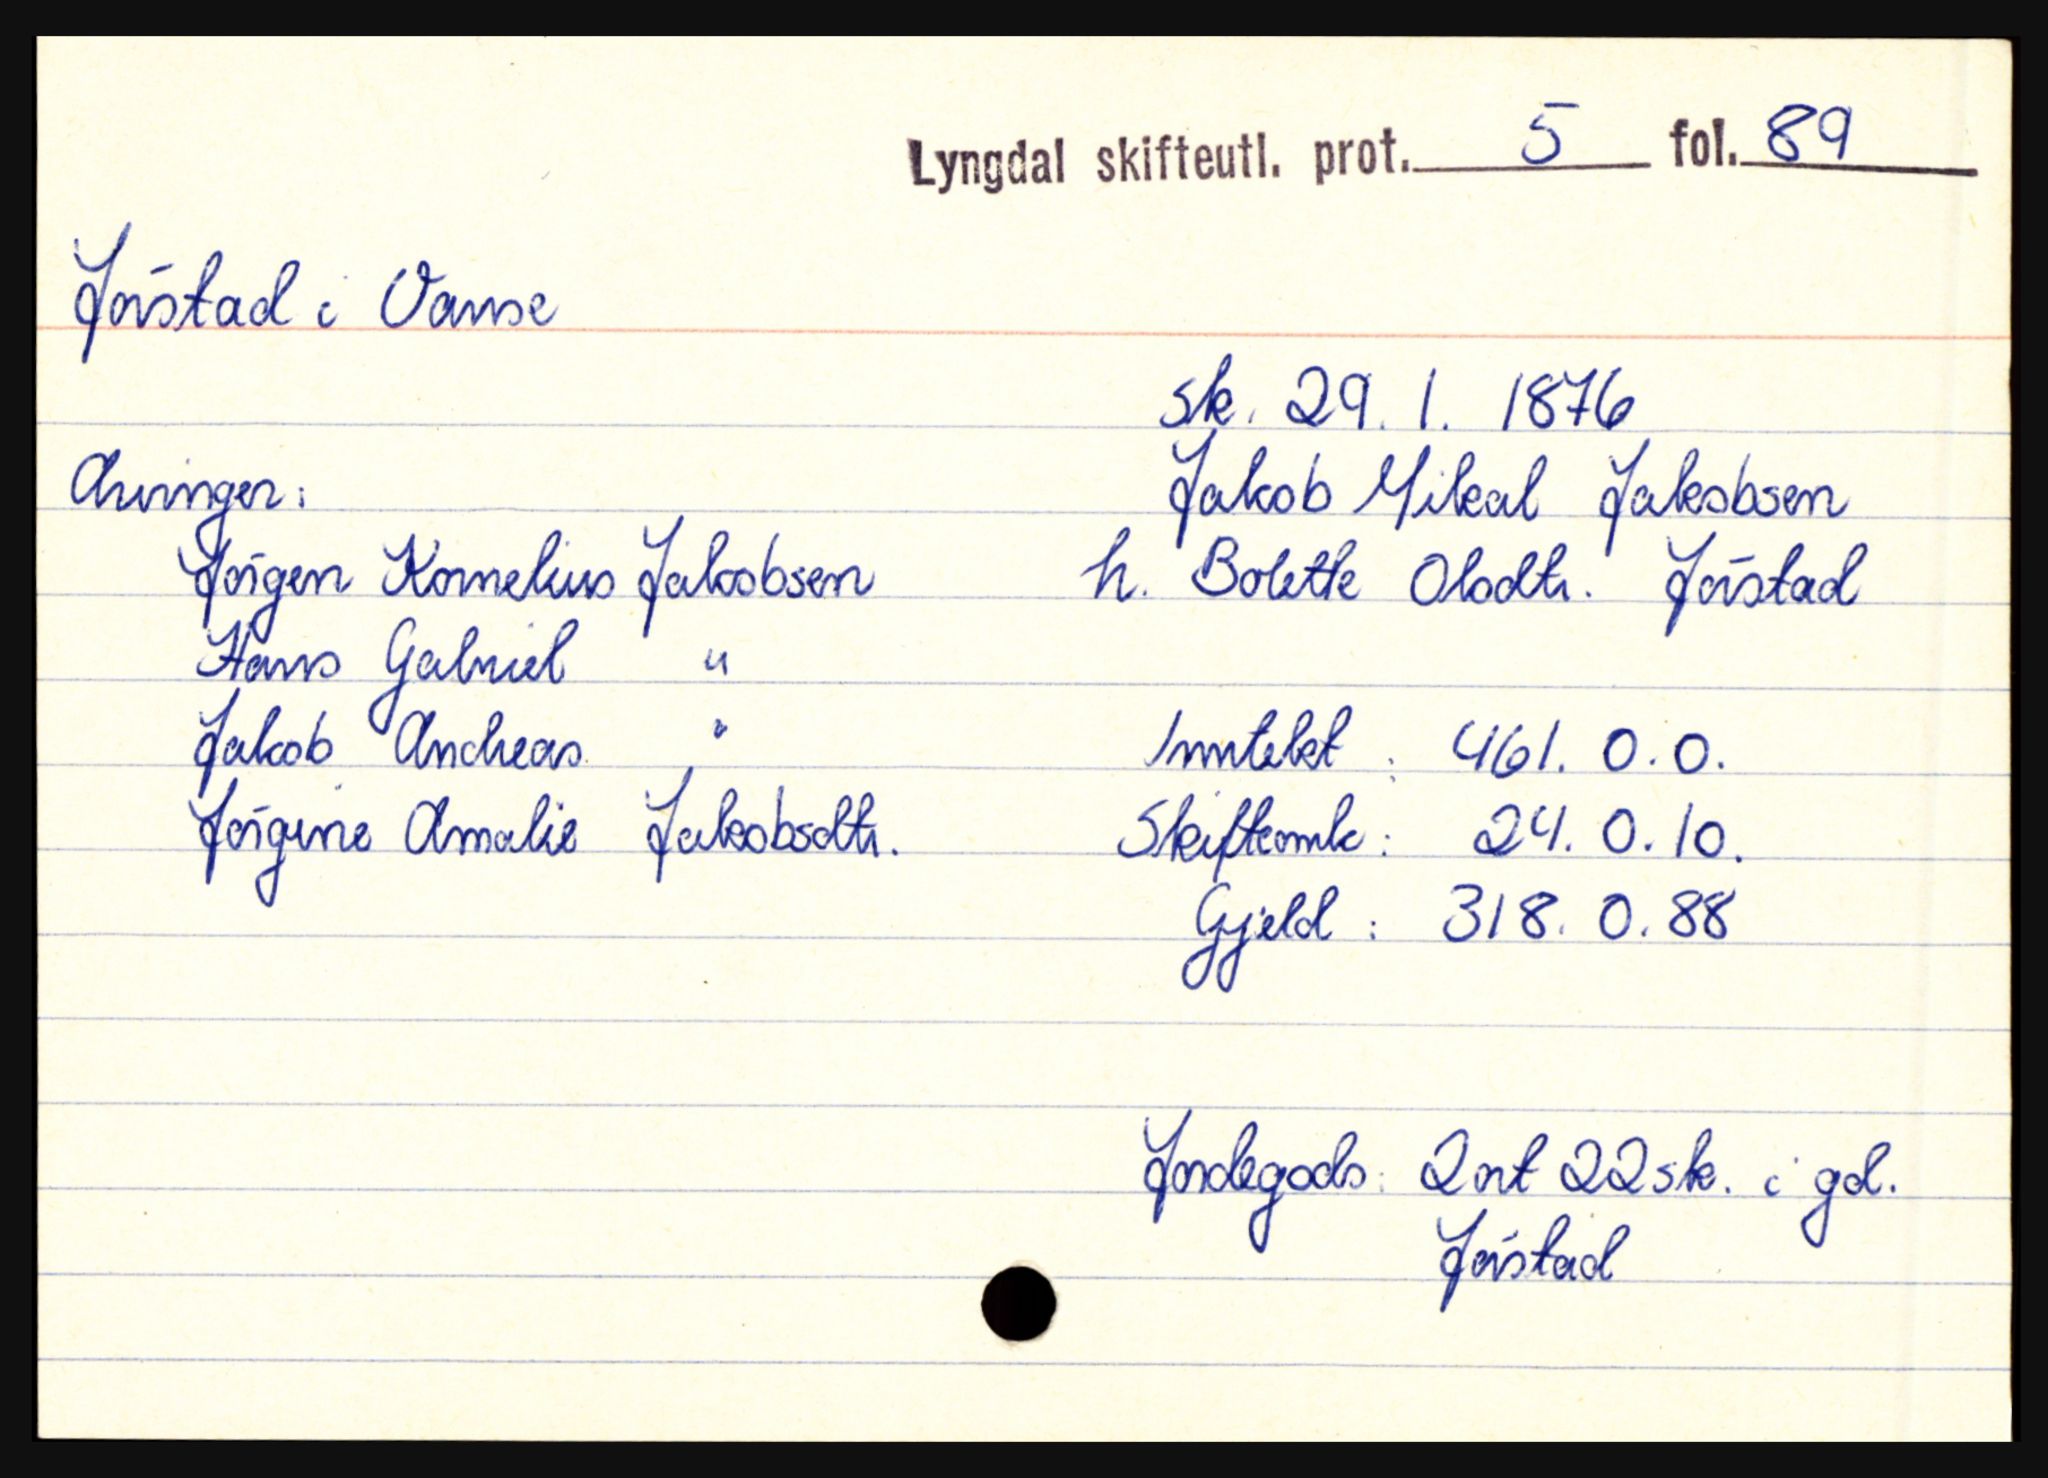 Lyngdal skifteutl. prot. 5 fol. 89
Jøstad i Vanse
sk. 29. 1. 1876
Arvinger:
Jakob Mikal Jakobsen
Jørgen Kornelius Jakobsen
h. Bolette Olsdtr. Jøstad
Hans Gabriel "
Jakob Andreas "
Inntekt : 461. 0. 0.
Jørgine Amalie Jakobsdtr.
Skifteomk : 24. 0. 10.
Gjeld : 318. 0. 88
Jordegods : 2 ort 22 sk. i gd.
Jøstad